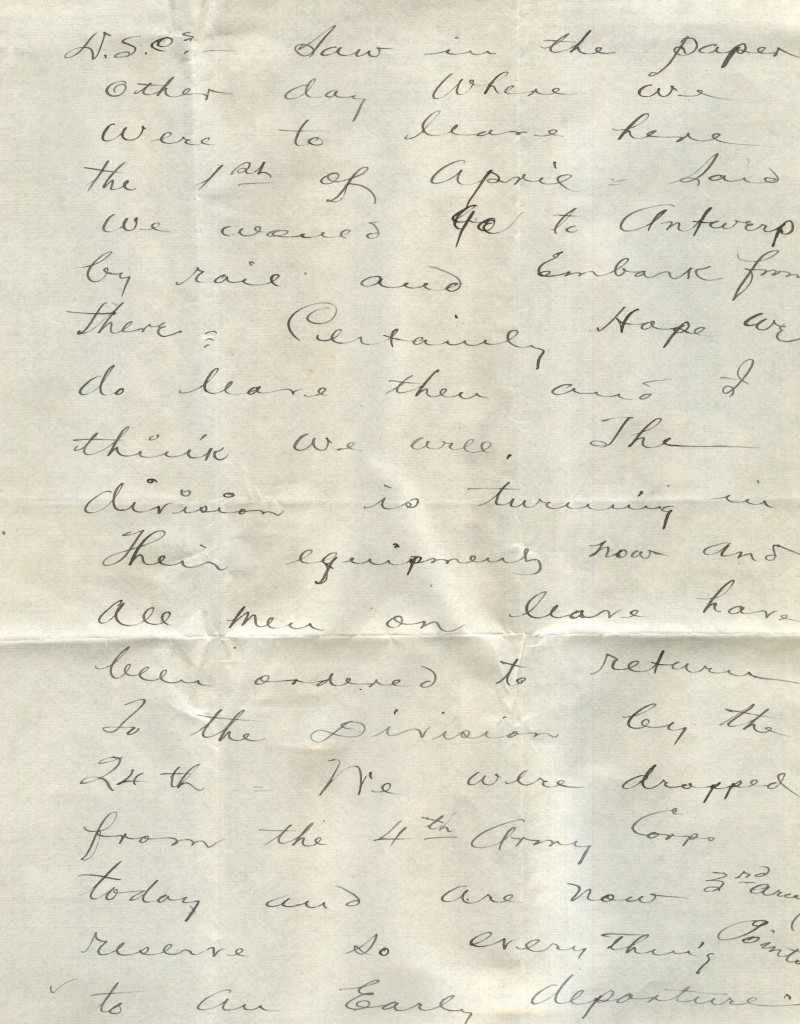 D.S.Cs. – Saw in the paper
other day where we
were to leave here
the 1st of April – Said
we would go to Antwerp
by rail and Embark from
there = Certainly Hope we
do leave then and I
think we will. The
division is turning in
Their equipment now and
All men on leave have
been ordered to return
To the Division by the
24th – We were dropped
from the 4th Army Corps
today and are now 3rd army
reserve so everything Points
to an Early departure.